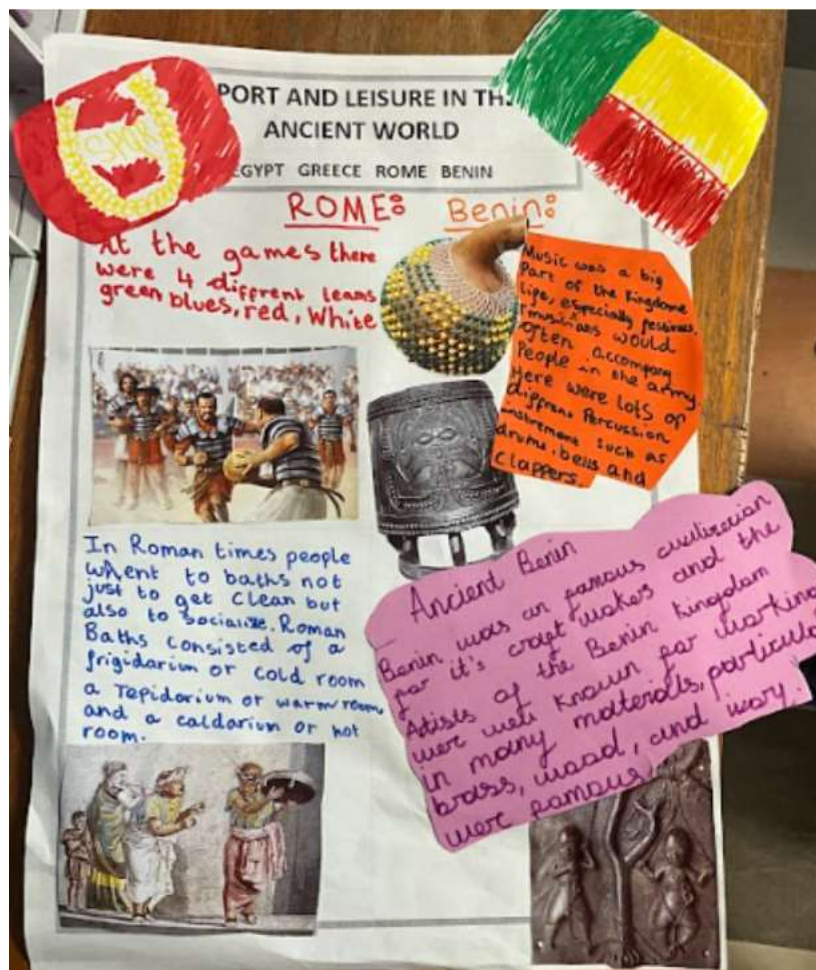 SPQR
PORT AND LEISURE IN TH
ANCIENT WORLD
EGYPT GREECE ROME BENIN
ROME:
Benin:
At the games there
were 4 different teams
green blues, red, White
Music was a big
Part of the Kingdome
life, especially festivals,
musicians would
often accompany
People in the army
Here were lots of
diffrent Percussion
instrement such as
drums, bells and
clappers.
In Roman times people
whent to baths not
just to get Clean but
also to socialize. Roman
Baths consisted of a
frigidarium or cold room
a Tepidarium or warm room
and a caldarium or hot
room.
Ancient Benin
Benin was an famous civilization
for it's craft makes and the
Artists of the Benin Kingdom
wer well known for working
in many materials, particula
brass, wood, and ivory.
wer famous